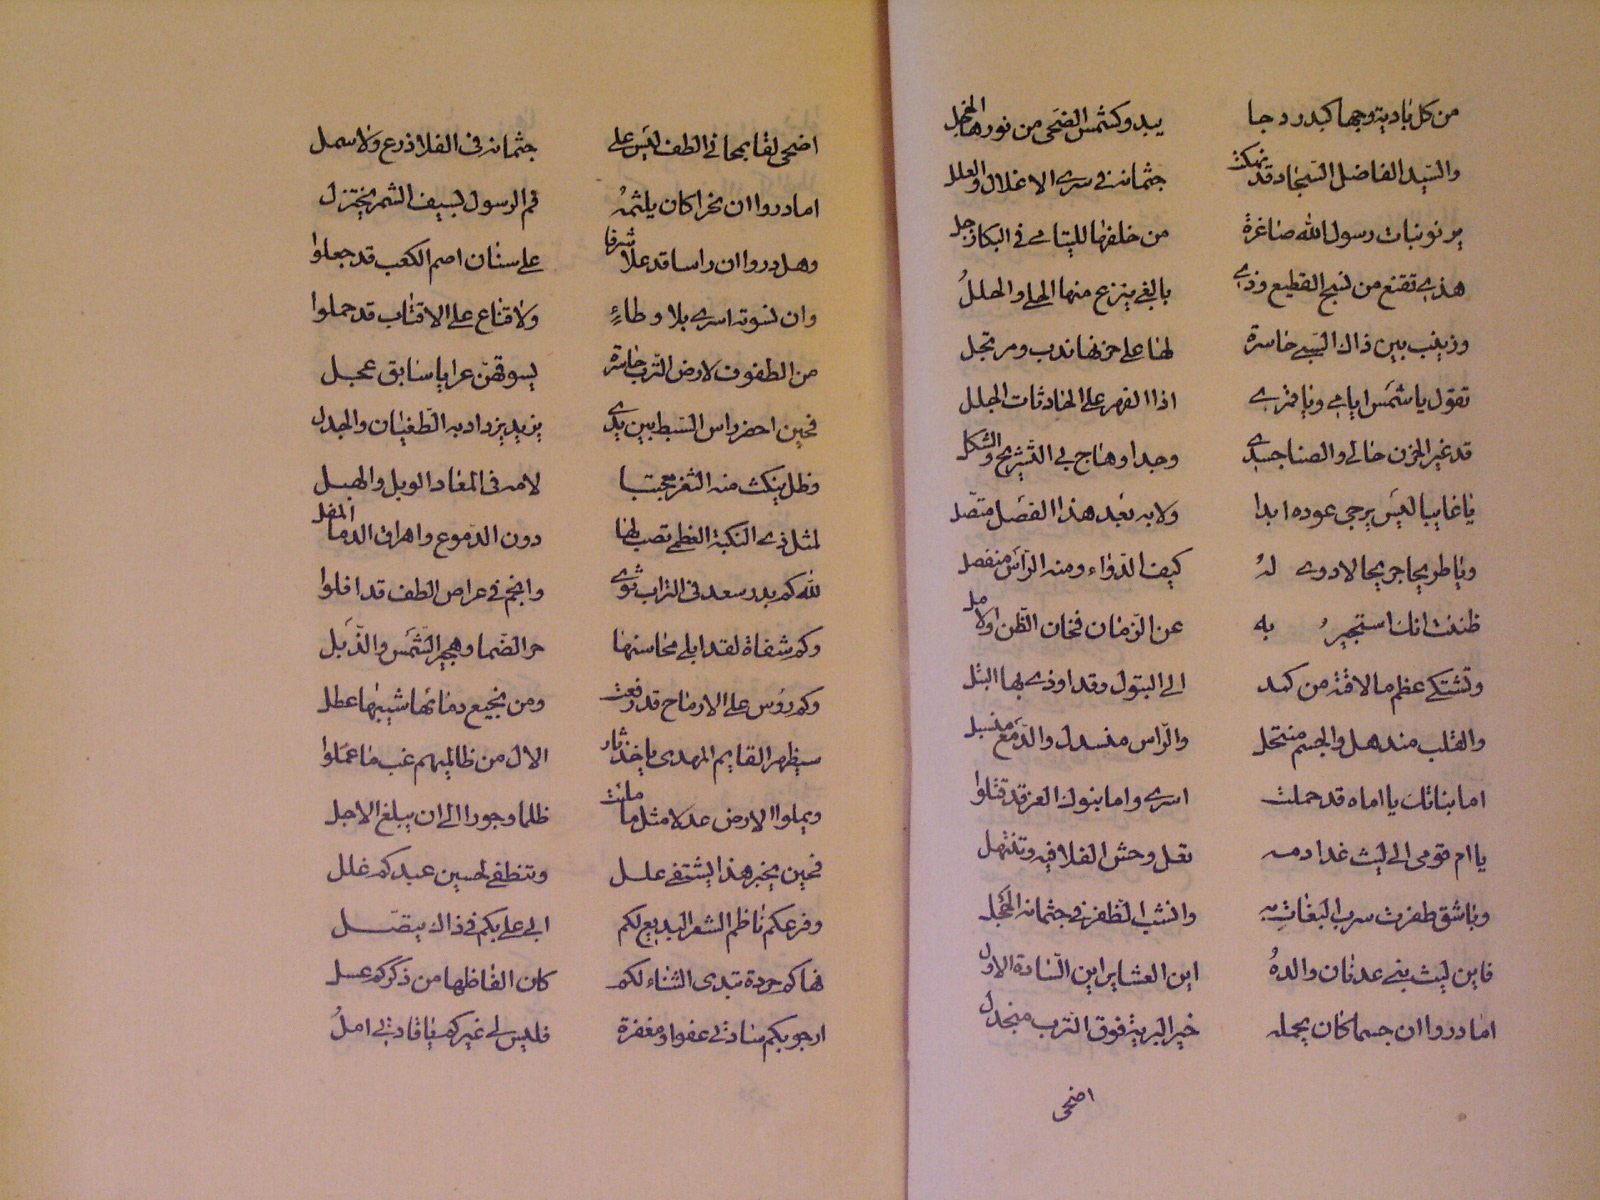 من كل بادية وجهها كبدر دجا يبدو كشمس الضحى من نورها الخجل
والسيد الفاضل السجاد قد نهكت جثمانه في سرى الاغلال والعلل
يرنو بنات رسول الله صاغرة من خلفها لليتامى في البكا زجل
هذي تقنع من نسج القطيع وذي بالبغي ينزع منها الحلي والحلل
وزينب بين ذاك السبي حاسرة لها على حزنها ندب ومرتجل
تقول يا شمس ايامي ويا قمري اذا القهر على الحادثات الجلل
قد غير الحزن حالي والضنا جسدي وجدا وهاج بي التبريح والثكل
يا غايبا ليس يرجى عوده ابدا ولا به بعد هذا الفصل متصل
ويا طريحا جريحا لا دوى له كيف الدواء ومنه الراس منفصل
ظننت انك استجير به عن الزمان فخان الظن والامل
وتشتكي عظم ما لاقته من كمد الى البتول وقد اوذى بها الثكل
والقلب منذهل والجسم منتحل والراس منسدل والدمع منسبل
اما بناتك يا اماه قد حملت اسرى واما بنوك الغر قد قتلوا
يا ام قومي الى ليث غدا دمه تعل وحش الفلا فيه وتنتهل
وباشق ظفرت سرب البغاث به وانشب الظفر في جثمانه الحجل
فاين ليث بني عدنان والده اين العشاير اين السادة الاول
اما دروا ان جسما كان يحمله خير البرية فوق الترب منجدل
اضحى
اضحى لقا بمحاني الطف ليس على جثمانه في الفلا ذرع ولا سمل
اما دروا ان نحرا كان يلثمه فم الرسول بسيف الشمر يختزل
وهل دروا ان راسا قد علا شرفا على سنان اصم الكعب قد جعلوا
وان نسوته اسرى بلا وطاء ولا قناع على الاقتاب قد حملوا
من الطفوف لارض الترب حاسرة يسوقهن عرايا سابق عجل
فحين احضر راس السبط بين يدي يزيد يزداد به الطغيان والجدل
وظل ينكث منه الثغر مجتبا لامه في المعاد الويل والهبل
لمثل ذي النكبة العظمى تصب لها دون الدموع واهراق الدما المقل
لله كم بدر سعد في التراب ثوى وانجم في عراص الطف قد افلوا
وكم شفاة لقد ابلى محاسنها حر الضما وهجير الشمس والذبل
وكم رؤس على الارماح قد رفعت ومن نجيع دمائها شيبها عطل
سيظهر القايم المهدى ياخذ ثار الال من ظالميهم غب ما عملوا
ويملوا الارض عدلا مثل ما ملئت ظلما وجورا الى ان يبلغ الاجل
فحين يخبر هذا يشتفي علل وتنطفي لحسين عبدكم غلل
وفرعكم ناظم الشعر البديع لكم ابي علي بكم في ذاك يتصل
فهاكم جودة تبدى الثناء لكم كان الفاظها من ذكركم عسل
ارجو بكم سادتي عفوا ومغفرة فليس لي غيركم يا قادتي امل